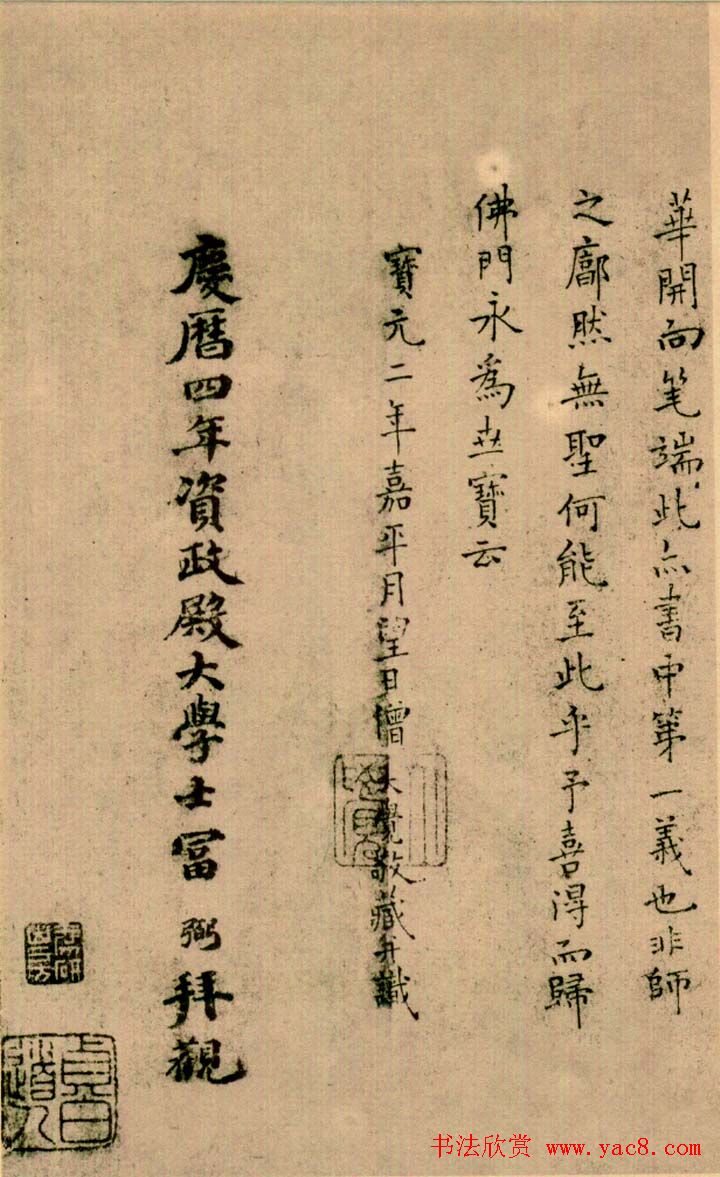 華開向笔端此亦書中第一義也非師
之廓然無聖何能至此乎予喜淂而歸
佛門永為世寶云
寶元二年嘉平月望日僧大覺敬藏并識
慶曆四年資政殿大學士富弼拜觀
书法欣赏 www.yac8.com